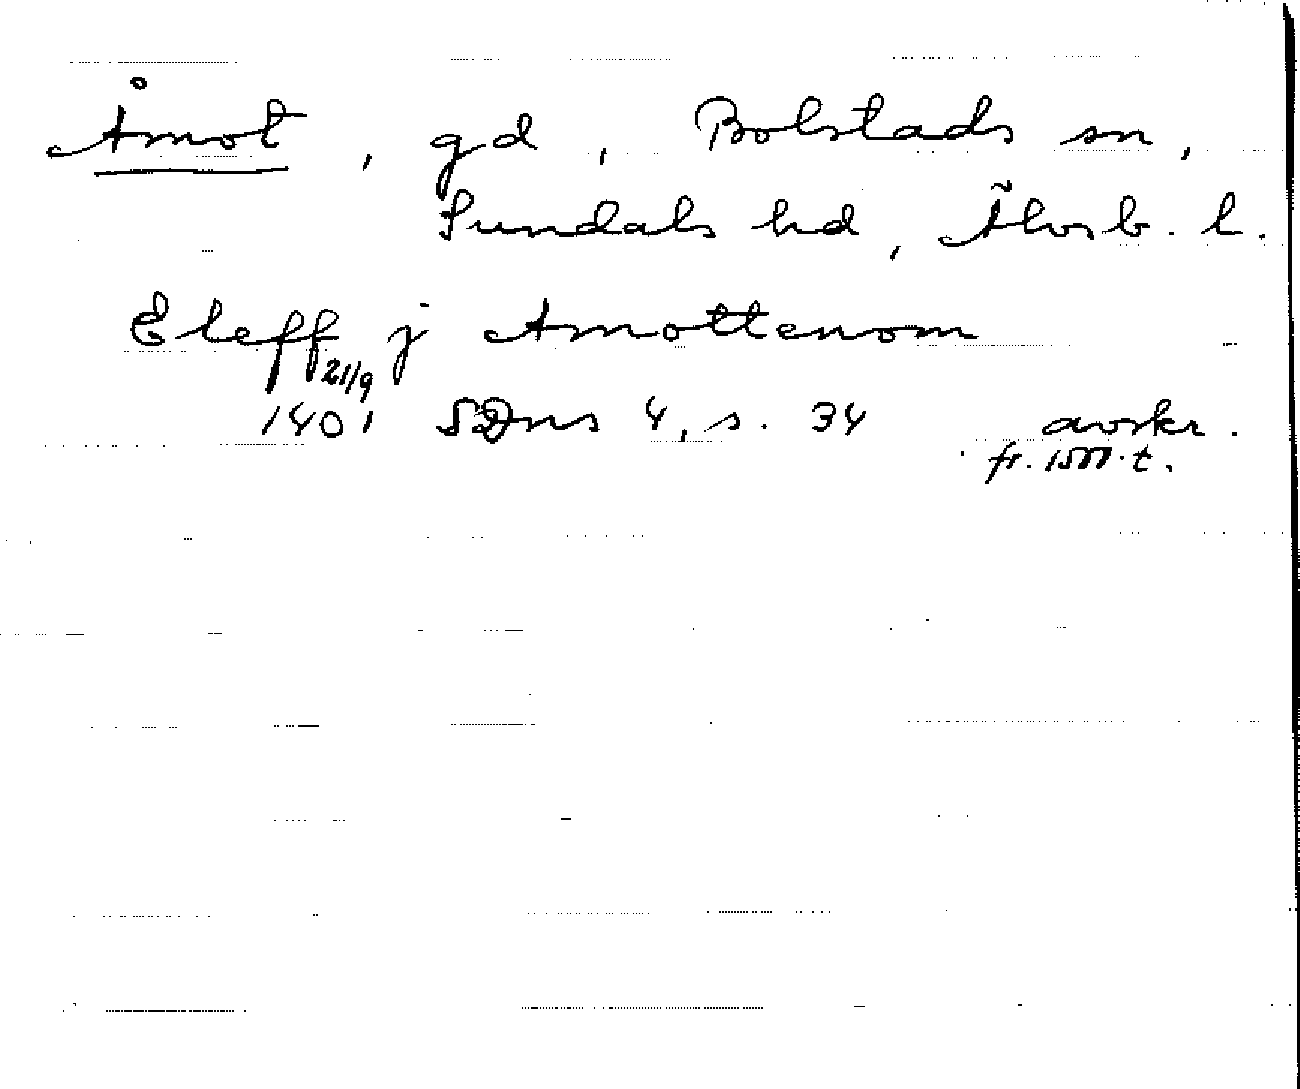 Åmot, gd, Bolstads sn,
Sundals hd, Älvsb. l.
Eleff j Amottenom
21/9
1401 SDns 4, s. 34 avskr.
fr. 1500-t.